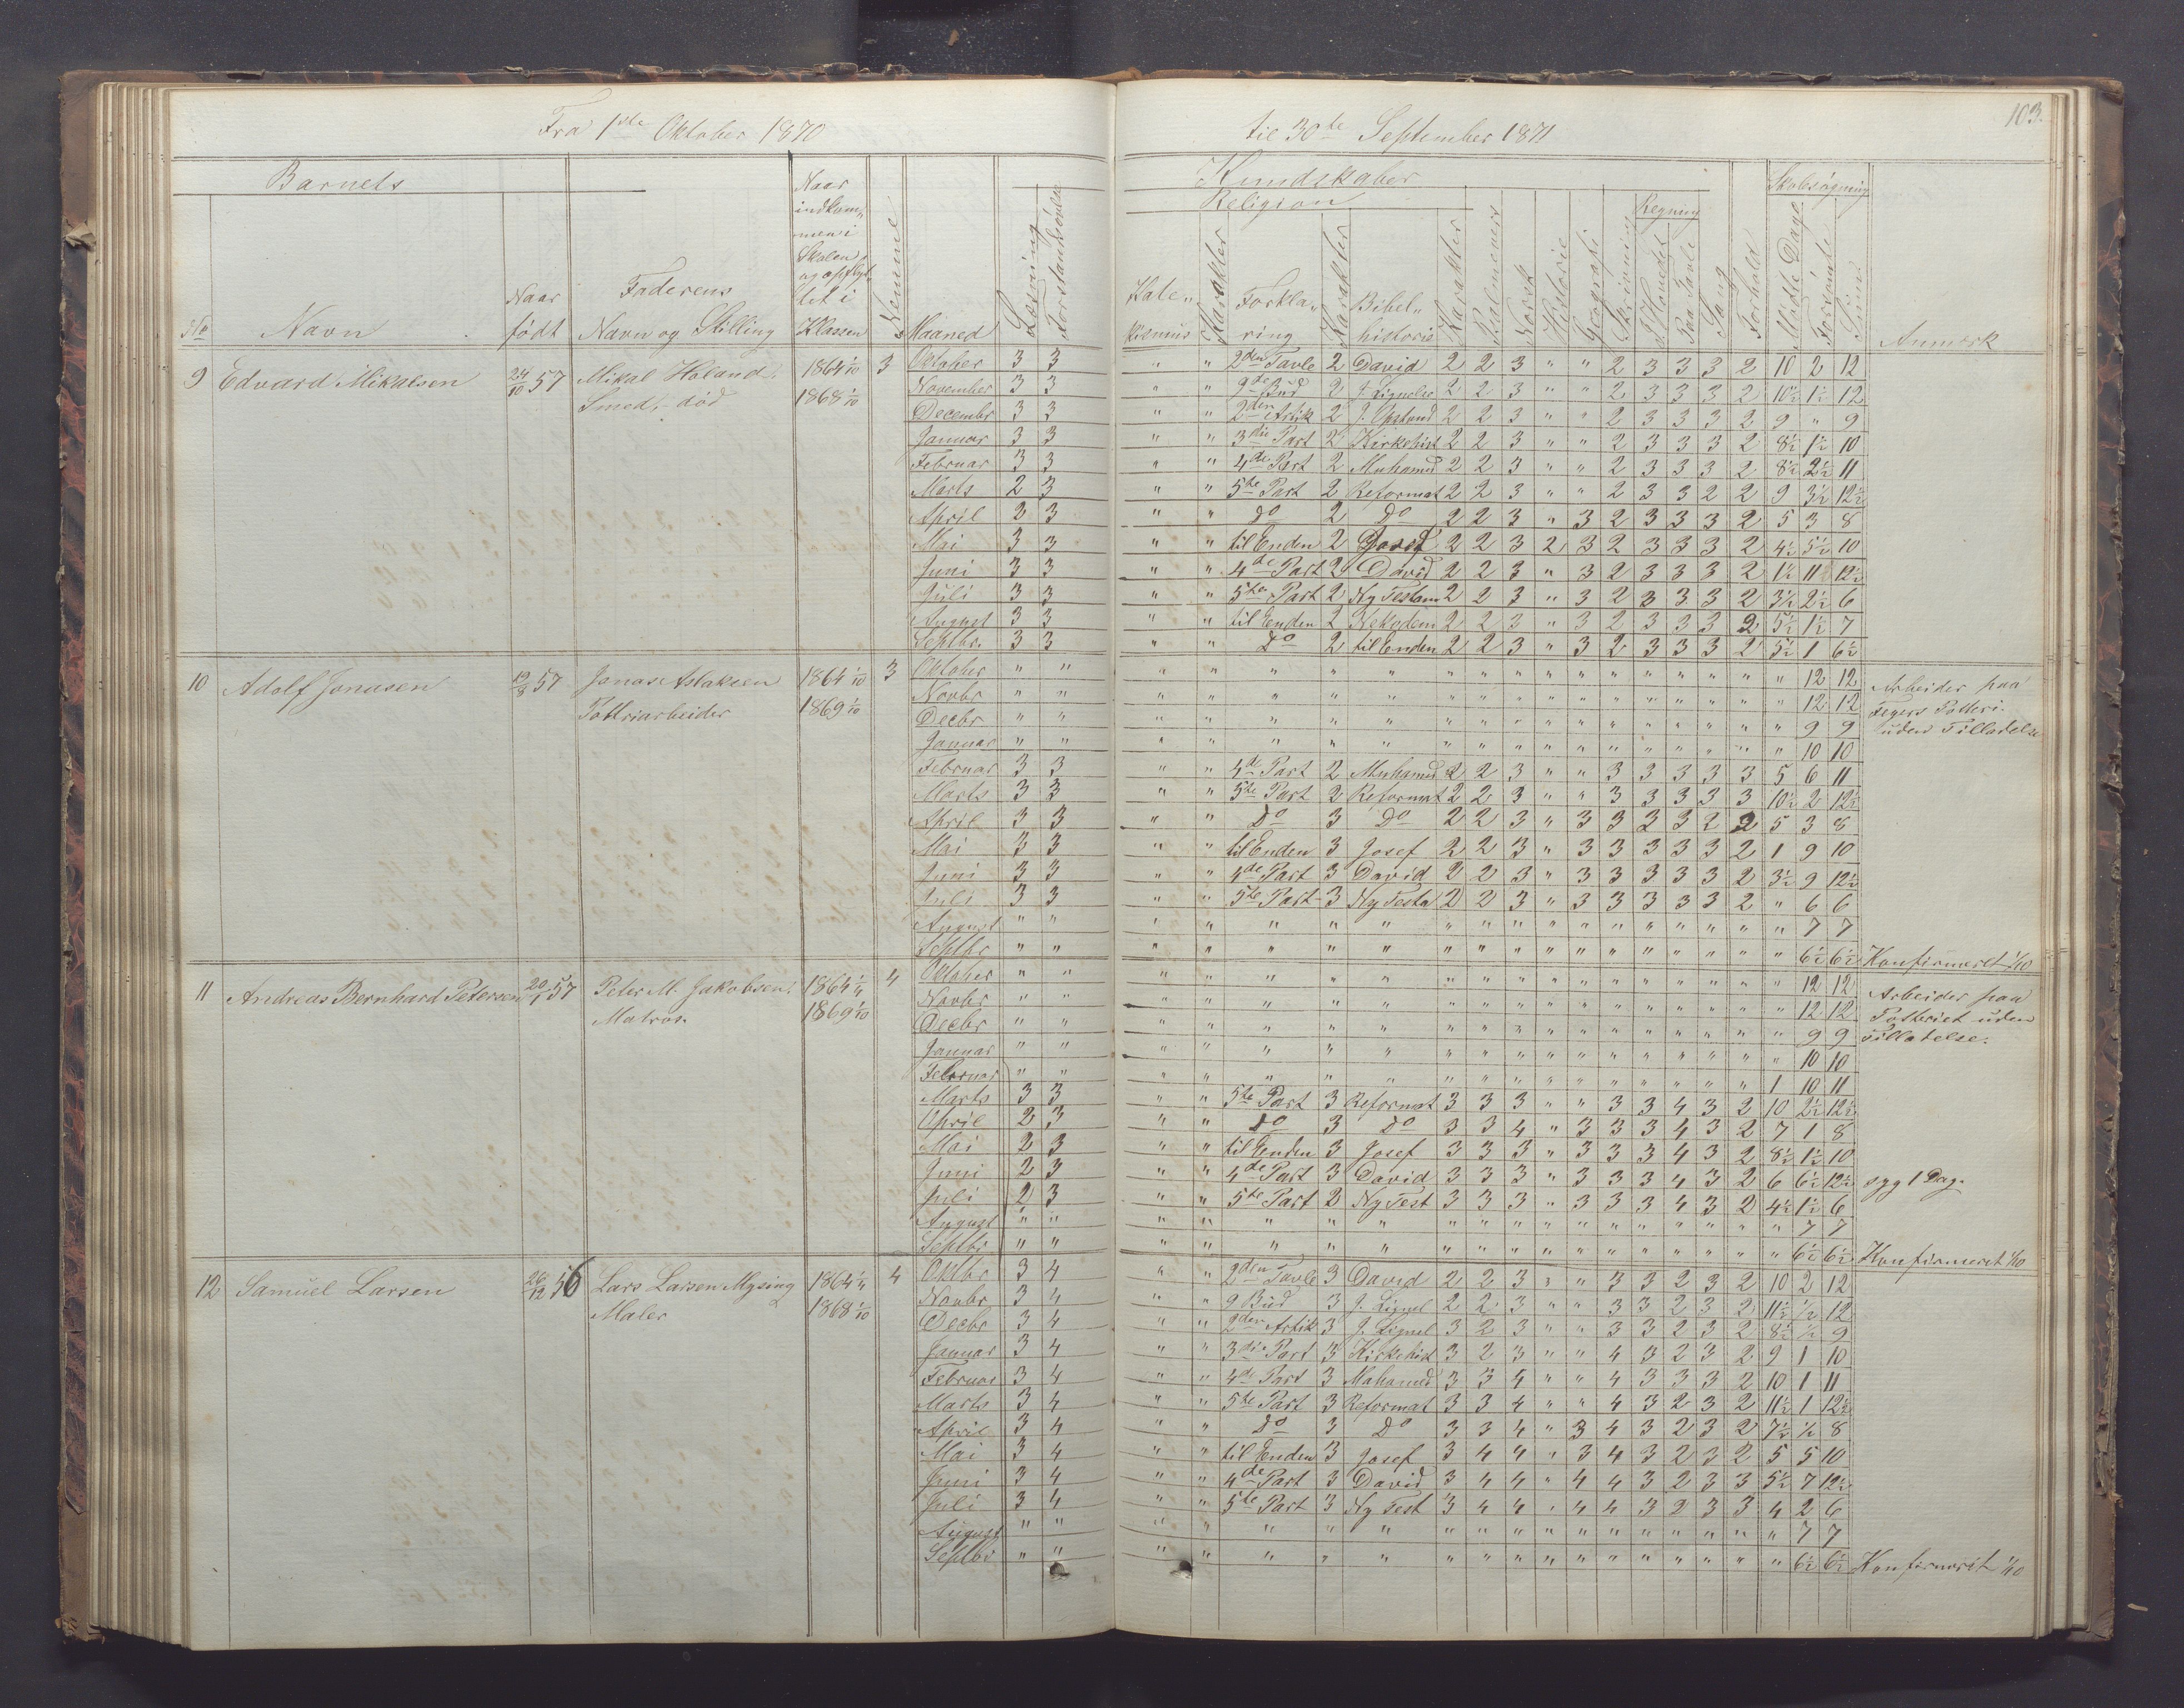 103.
Fra 1ste Oktober 1870 til 30te September 1871
Barnets Naar indkommen i Skolen og opflyttet i Klassen Kundskaber Skolesøgning
Religion Regning
No Navn Naar født Faderens Navn og Stilling Nemme Maaned Læsning Forstandsøvelse Katekismus Karakter Forklaring Karakter Bibelhistorie Karakter Psalmevers Norsk Historie Geografi Skrivning I Hovedet Paa Tavle Sang Forhold Mødte Dage Forsømte Sum Anmærk
9 Edvard Mikalsen 24/10 57 Mikal Holand. 1864 1/10 3 Oktober 3 3 " " 2den Tavle 2 David 2 2 3 " " 2 3 3 3 2 10 2 12
Smed, død 1868 1/10 November 3 3 " " 9de Bud 2 J. Lignelse 2 2 3 " " 2 3 3 3 2 10½ 1½ 12
December 3 3 " " 2den Artik 2 J. Opstand 2 2 3 " " 2 3 3 3 2 9 " 9
Januar 3 3 " " 3die Part 2 Kirkehist 2 2 3 " " 2 3 3 3 2 8½ 1½ 10
Februar 3 3 " " 4de Part 2 Muhamed 2 2 3 " " 2 3 3 3 2 8½ 2½ 11
Marts 2 3 " " 5te Part 2 Reformat 2 2 3 " " 2 3 3 2 2 9 3½ 12½
April 2 3 " " Do 2 Do 2 2 3 " 3 2 3 3 3 2 5 3 8
Mai 3 3 " " til Enden 2 Josef 2 2 3 2 3 2 3 3 3 2 4½ 5½ 10
Juni 3 3 " " 4de Part 2 David 2 2 3 " 3 2 3 3 3 2 1½ 11 12½
Juli 3 3 " " 5te Part 2 Ny Testam 2 2 3 " 3 2 3 3 3 2 3½ 2½ 6
August 3 3 " " til Enden 2 Nekodem 2 2 3 " 3 2 3 3 3 2 5½ 1½ 7
Septbr. 3 3 " " Do 2 til Enden 2 2 3 " 3 2 3 3 3 2 5½ 1 6½
10 Adolf Jonasen 19/8 57 Jonas Aslaksen 1864 1/10 3 Oktober " " " " " " " " " " " " " " " " " " 12 12 Arbeider paa
Pottriarbeider 1869 1/10 Novbr " " " " " " " " " " " " " " " " " " 12 12 Fegers Potteri
Decbr " " " " " " " " " " " " " " " " " " 9 9 uden Tilladelse
Januar " " " " " " " " " " " " " " " " " " 10 10
Februar 3 3 " " 4de Part 2 Muhamed 2 2 3 " " 3 3 3 3 3 5 6 11
Marts 3 3 " " 5te Part 2 Reformat 2 2 3 " " 3 3 3 3 3 10½ 2 12½
April 3 3 " " Do 3 Do 2 2 3 " 3 3 3 3 2 2 5 3 8
Mai 3 3 " " til Enden 3 Josef 2 2 3 " 3 3 3 3 3 2 1 9 10
Juni 3 3 " " 4de Part 3 David 2 2 3 " 3 3 3 3 3 2 3½ 9 12½
Juli 3 3 " " 5te Part 3 Ny Testa 2 2 3 " 3 3 3 3 3 2 " 6 6
August " " " " " " " " " " " " " " " " " " 7 7
Septbr " " " " " " " " " " " " " " " " " " 6½ 6½ Konfirmeret 1/10
11 Andreas Bernhard Petersen 20/1 57 Peter M. Jakobsen. 1864 1/4 4 Oktober " " " " " " " " " " " " " " " " " " 12 12 Arbeider paa
Matros. 1869 1/10 Novbr " " " " " " " " " " " " " " " " " " 12 12 Potteriet uden
Decbr " " " " " " " " " " " " " " " " " " 9 9 Tilladelse.
Januar " " " " " " " " " " " " " " " " " " 10 10
Februar " " " " " " " " " " " " " " " " " 1 10 11
Marts 3 3 " " 5te Part 3 Reformat 3 3 3 " " 3 3 4 3 2 10 2½ 12½
April 2 3 " " Do 3 Do 3 3 4 " 3 3 3 4 3 2 7 1 8
Mai 2 3 " " til Enden 3 Josef 3 3 3 " 3 3 3 4 3 2 8½ 1½ 10
Juni 2 3 " " 4de Part 3 David 3 3 3 " 3 3 3 4 3 2 6 6½ 12½ syg 1 Dag.
Juli 2 3 " " 5te Part 2 Ny Test 3 3 3 " 3 3 3 4 3 2 4½ 1½ 6
August " " " " " " " " " " " " " " " " " " 7 7
Septbr " " " " " " " " " " " " " " " " " " 6½ 6½ Konfirmeret 1/10
12 Samuel Larsen 26/12 56 Lars Larsen Mysing 1864 1/4 4 Oktbr 3 4 " " 2den Tavle 3 David 2 2 3 " " 3 3 2 3 2 10 2 12
Maler 1868 1/10 Novbr 3 4 " " 9 Bud 3 J. Lignel 2 2 3 " " 3 3 2 3 2 11½ ½ 12
Decbr 3 4 " " 2den Artik 3 J. Lignel 3 2 3 " " 3 3 2 3 2 8½ ½ 9
Januar 3 4 " " 3die Part 3 Kirkehist 3 2 3 " " 4 3 2 3 2 9 1 10
Februar 3 4 " " 4de Part 3 Mahamed 3 3 4 " " 4 3 3 3 2 10 1 11
Marts 3 4 " " 5te Part 3 Reformat 3 3 4 " " 4 3 2 3 2 11½ 1 12½
April 3 4 " " Do 3 Do 3 3 4 " 3 4 3 2 3 2 7½ ½ 8
Mai 3 4 " " til Enden 3 Josef 3 4 4 " 3 4 3 2 3 2 5 5 10
Juni 3 4 " " 4de Part 3 David 3 4 4 " 4 4 3 2 3 3 5½ 7 12½
Juli 3 4 " " 5te Part 3 Ny Test 3 4 4 " 4 4 3 2 3 3 4 2 6
August " " " " " " " " " " " " " " " " " " 7 7
Septbr " " " " " " " " " " " " " " " " " " 6½ 6½ Konfirmeret 1/10